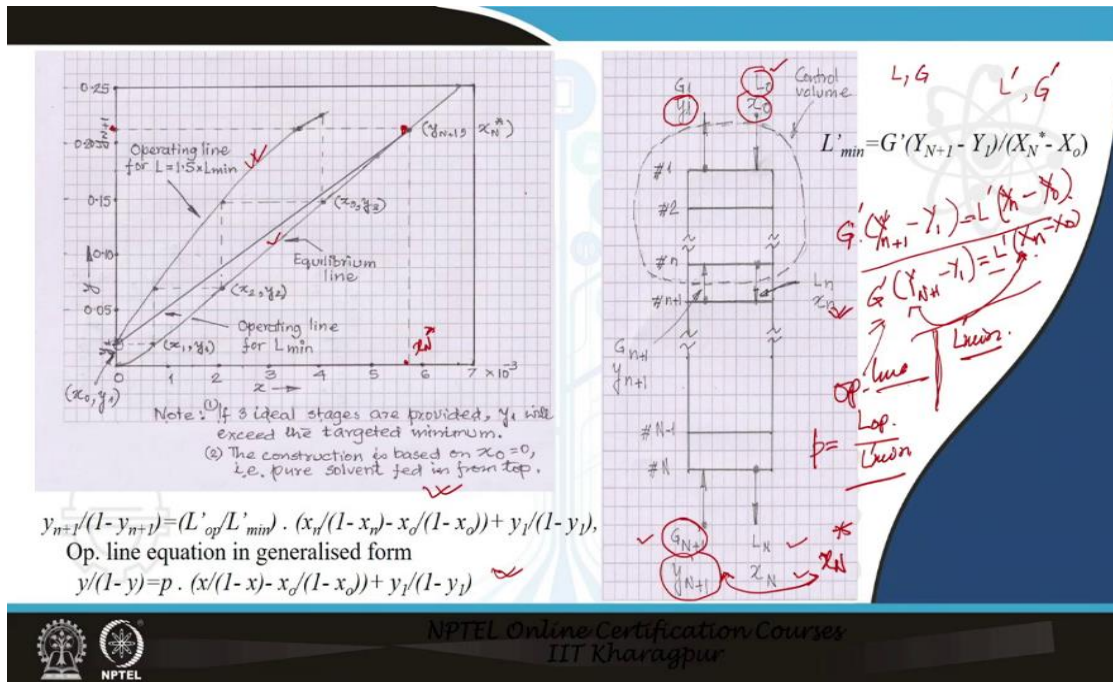 0.25
0.20
0.15
0.10
0.05
y
y_{N+1}
Operating line
for L=1.5×Lmin
(y_{N+1}, x_N^*)
(x_3, y_3)
Equilibrium
line
(x_2, y_2)
(x_1, y_1)
Operating line
for Lmin
(x_0, y_1)
x_N^*
0 1 2 3 4 5 6 7 ×10^{-3}
x →
Note: (1) If 3 ideal stages are provided, y_1 will
exceed the targeted minimum.
(2) The construction is based on x_0=0,
i.e. pure solvent fed in from top.
y_{n+1}/(1- y_{n+1})=(L'_{op}/L'_{min}) . (x_n/(1- x_n)- x_o/(1- x_o))+ y_1/(1- y_1),
Op. line equation in generalised form
y/(1- y)=p . (x/(1- x)- x_o/(1- x_o))+ y_1/(1- y_1)
G_1 L_0
y_1 x_0
Control
volume
#1
#2
#n
#n+1
L_n
x_n
G_{n+1}
y_{n+1}
#N-1
#N
G_{N+1} L_N
y_{N+1} x_N
x_N^*
L, G L', G'
L'_{min}=G'(Y_{N+1}- Y_1)/(X_N^*- X_o)
G'(Y_{n+1} - Y_1) = L'(X_n - X_0).
G'(Y_{N+1} - Y_1) = L'(X_n - X_0)
L'min.
op. line
p= Lop.
L'min
NPTEL Online Certification Courses
IIT Kharagpur
NPTEL